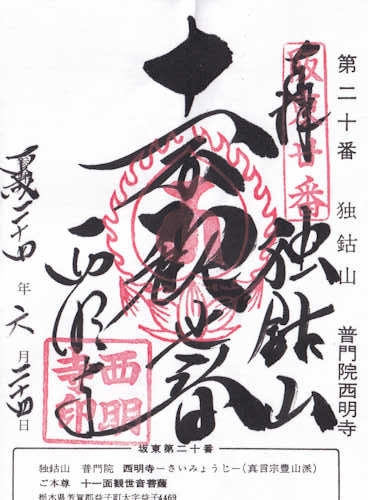 第二十番 独鈷山 普門院西明寺
奉拝
坂東廿番
独鈷山
十一面観世音
西明寺
平成二十四年六月二十四日
西明
寺印
坂東第二十番
独鈷山 普門院 西明寺―さいみょうじ―(真言宗豊山派)
ご本尊 十一面観世音菩薩
栃木県芳賀郡益子町大字益子4469